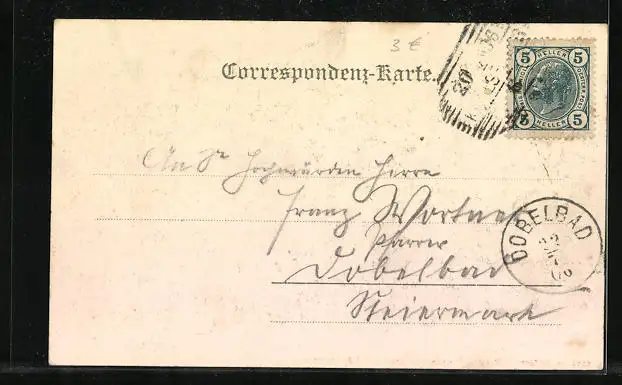 3 €
Correspondenz-Karte.
5 HELLER 5
5 HELLER 5
20
An Sr Hochwürden Herrn
Franz Wortner
Pfarrer
DOBELBAD
12
Dobelbad
Steiermark